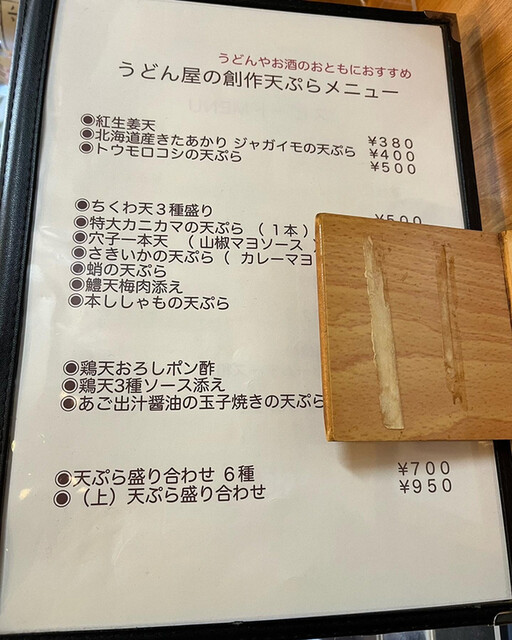 うどんやお酒のおともにおすすめ
うどん屋の創作天ぷらメニュー
◉紅生姜天 ¥380
◉北海道産きたあかり ジャガイモの天ぷら ¥400
◉トウモロコシの天ぷら ¥500
◉ちくわ天３種盛り
◉特大カニカマの天ぷら （１本）
◉穴子一本天 （山椒マヨソース
◉さきいかの天ぷら（ カレーマヨ
◉蛸の天ぷら
◉鱧天梅肉添え
◉本ししゃもの天ぷら
◉鶏天おろしポン酢
◉鶏天3種ソース添え
◉あご出汁醤油の玉子焼きの天ぷら
◉天ぷら盛り合わせ ６種 ¥700
◉（上）天ぷら盛り合わせ ¥950